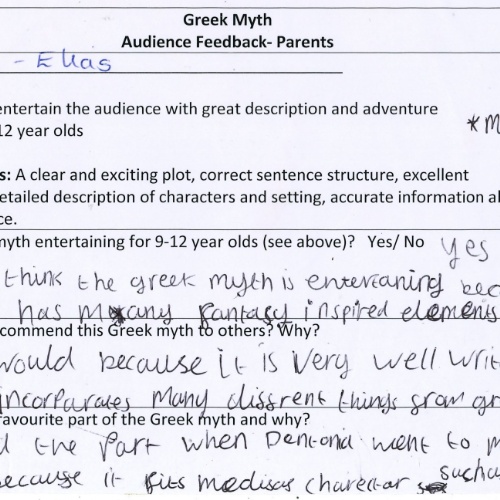 Greek Myth
Audience Feedback- Parents
- Elias
entertain the audience with great description and adventure
12 year olds
*M
s: A clear and exciting plot, correct sentence structure, excellent
etailed description of characters and setting, accurate information a
ce.
myth entertaining for 9-12 year olds (see above)? Yes/ No yes
think the greek myth is entertaning bec
has many fantasy inspired elements
commend this Greek myth to others? Why?
would because it is very well writ
incorparates many diffrent things from gr
favourite part of the Greek myth and why?
the part when went to m
because it fits medisas charectar